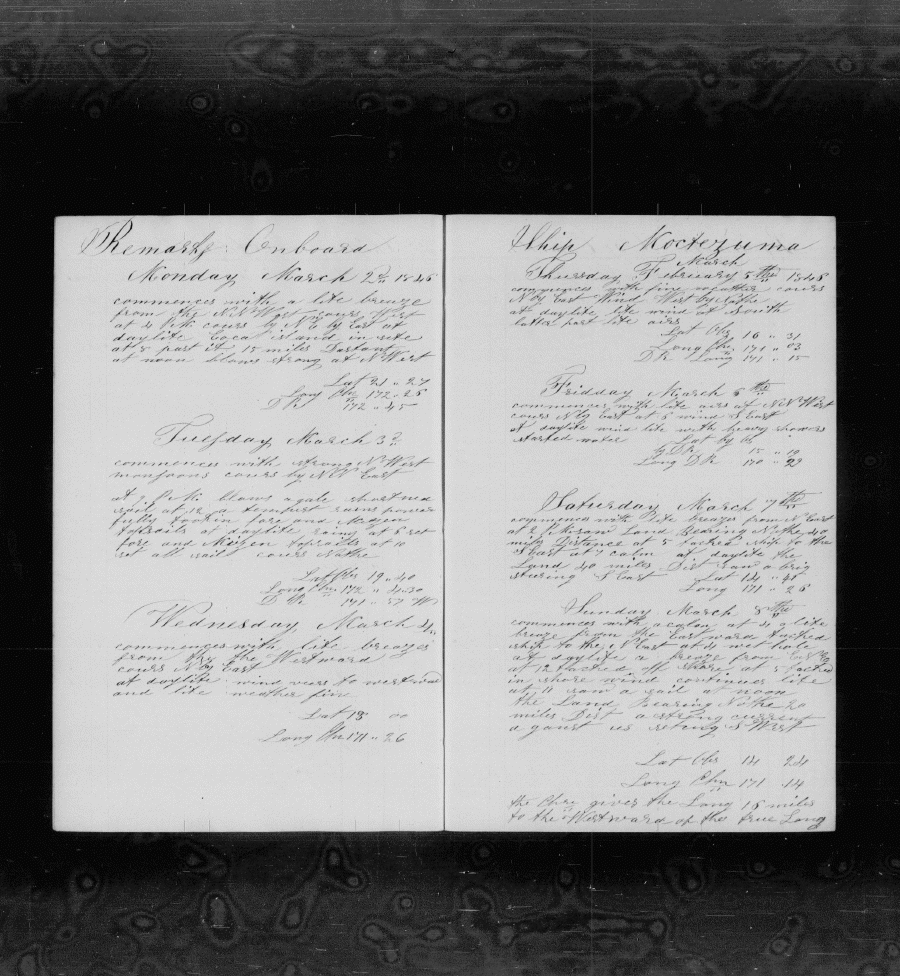 Remarks Onboard
Monday March 2nd 1846
commences with a lite breeze
from the NN West cours West
at 4 P.M. cours by N by East at
daylite island in site
at 5 past it 15 miles Distant
at noon blows strong at N West
Lat 21 " 27
Long Chr 172 " 26
DR 172 " 45
Tuesday March 3d
commences with strong N West
monsoons cours by NN East
at 9 P.M. blows a gale shortned
sail at 12 a tempest rains power
fully fore and Mizen
topsails at daylite rainy at 6 set
fore and Mizen topsails at 10
set all sail cours Nothe
Lat Obs 19 " 40
Long Chr 172 "
D R 171 " 57 W
Wednesday March 4
commences with lite breezes
from the the Westward
cours N by East
at daylite wind veers to westward
and lite weather fine
Lat 18 00
Long Chr 171 " 26
Ship Moctezuma
March
Thursday February 5th 1846
commences with fine weather cours
N by East Wind West by Nothe
at daylite lite wind at South
latter part lite airs
Lat Obs 16 " 31
Long Chr 171 " 03
DR Long 171 " 15
Fridday March 6th
commences with lite airs at NN West
cours N by East at wind S East
at daylite wind lite with hevy showers
started water
Lat by Ob
by DR 15 " 10
Long DR 170 "
Saturday March 7th
commences with lite breezes from N East
at 2 P.M. saw Land Bearing by the 40
mils Distance at 5 tacked ship to the
S East at 7 calm at daylite the
Land 40 miles Dist saw a brig
stering S East Lat 14 " 48
Long 171 " 26
Sunday March 8th
commences with a calm at 4 a lite
breeze from the East ward tacked
ship to the N East at 4 wc hole
at daylite a breeze from East N by
at 12 tacked off shore at 5 tacked
in shore wind continues lite
at 11 saw a sail at noon
the Land Bearing Nothe 20
miles Dist a strong current
against us seting S West
Lat Obs 14 24
Long Chr 171 14
the Chrr gives the Long 18 miles
to the Westward of the true Long